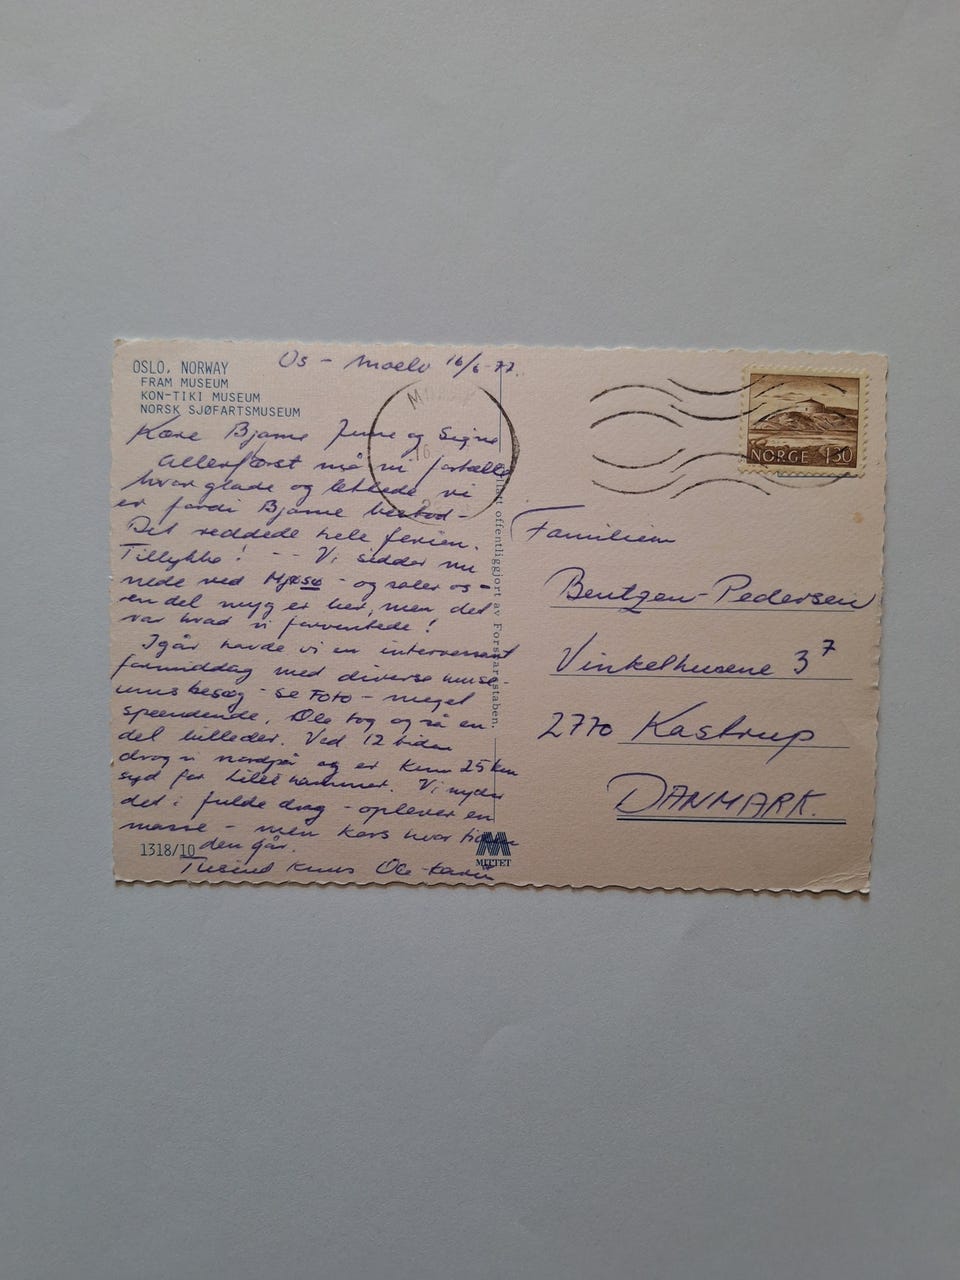 OSLO, NORWAY
FRAM MUSEUM
KON-TIKI MUSEUM
NORSK SJØFARTSMUSEUM
Os - Moelv 16/6-77.
Kære Bjarne og Signe
Allerførst må vi fortælle
hvor glade og lettede vi
er fordi Bjarne bestod -
Det reddede hele ferien.
Tillykke! -- Vi sidder nu
nede ved Mjøsa - og soler os -
en del myg er her, men det
var hvad vi forventede!
Igår havde vi en interessant
formiddag med diverse muse-
umsbesøg - se FOTO - meget
spændende. Ole tog også en
del billeder. Ved 12 tiden
drog vi nordpå og er kun 25 km
syd for Lillehammer. Vi nyder
det i fulde drag - oplever en
masse - men kors hvor tiden
den går.
Tusind knus Ole - Karin
1318/10
offentliggjort av Forsvarsstaben.
MITTET
16
NORGE 130
Familien
Bentzen-Pedersen
Vinkelhusene 3 7
2770 Kastrup
DANMARK.